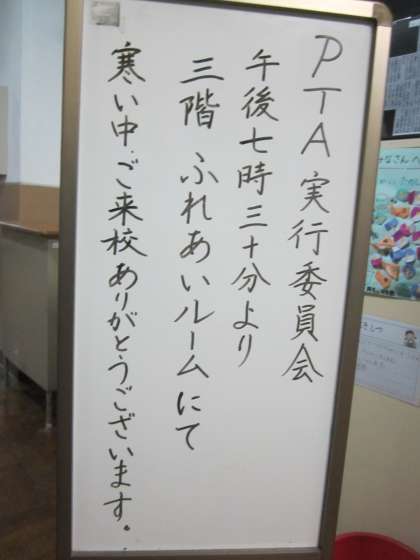 PTA実行委員会
午後七時三十分より
三階 ふれあいルームにて
寒い中、ご来校ありがとうございます。